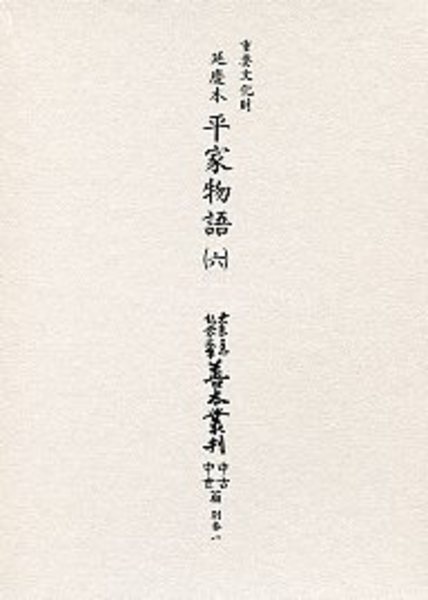 重要文化財
延慶本 平家物語(六)
大東急
記念文庫
善本叢刊
中古
中世
篇 別巻一